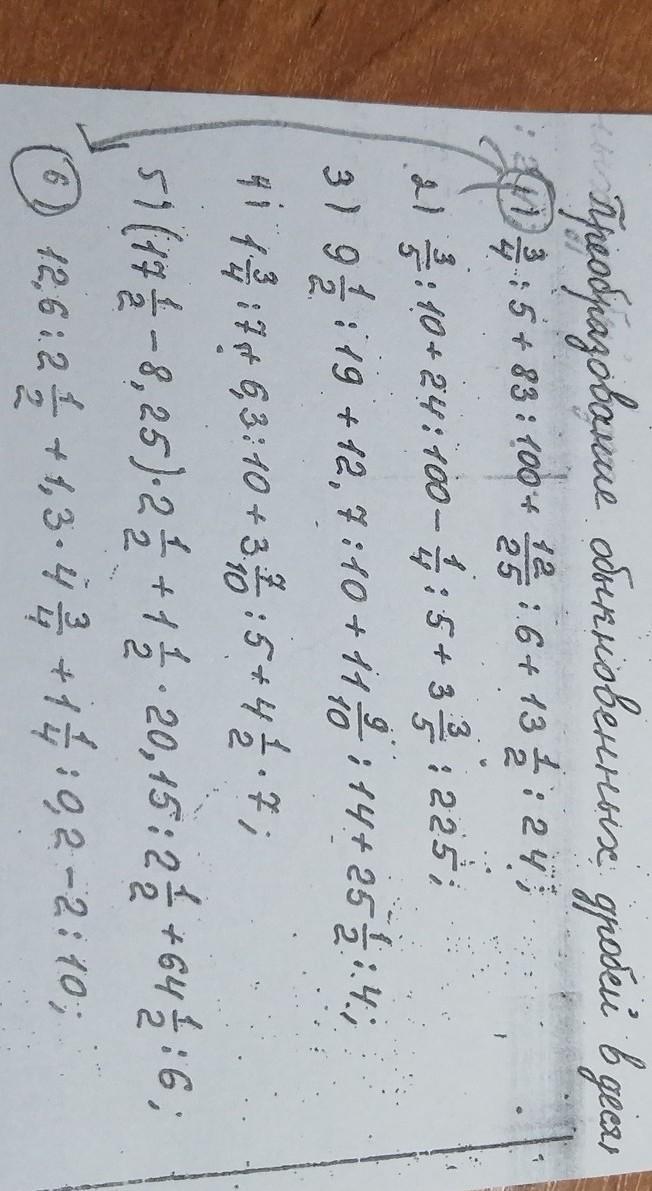 Преобразование обыкновенных дробей в деся
1) 3/4 : 5 + 83 : 100 + 12/25 : 6 + 13 1/2 : 24;
2) 3/5 : 10 + 24 : 100 - 1/4 : 5 + 3 3/5 : 225;
3) 9 1/2 : 19 + 12,7 : 10 + 11 9/10 : 14 + 25 1/2 : 4;
4) 1 3/4 : 7 + 6,3 : 10 + 3 7/10 : 5 + 4 1/2 · 7;
5) (17 1/2 - 8,25) · 2 1/2 + 1 1/2 · 20,15 : 2 1/2 + 64 1/2 : 6;
6) 12,6 : 2 1/2 + 1,3 · 4 3/4 + 1 1/4 : 0,2 - 2 : 10;